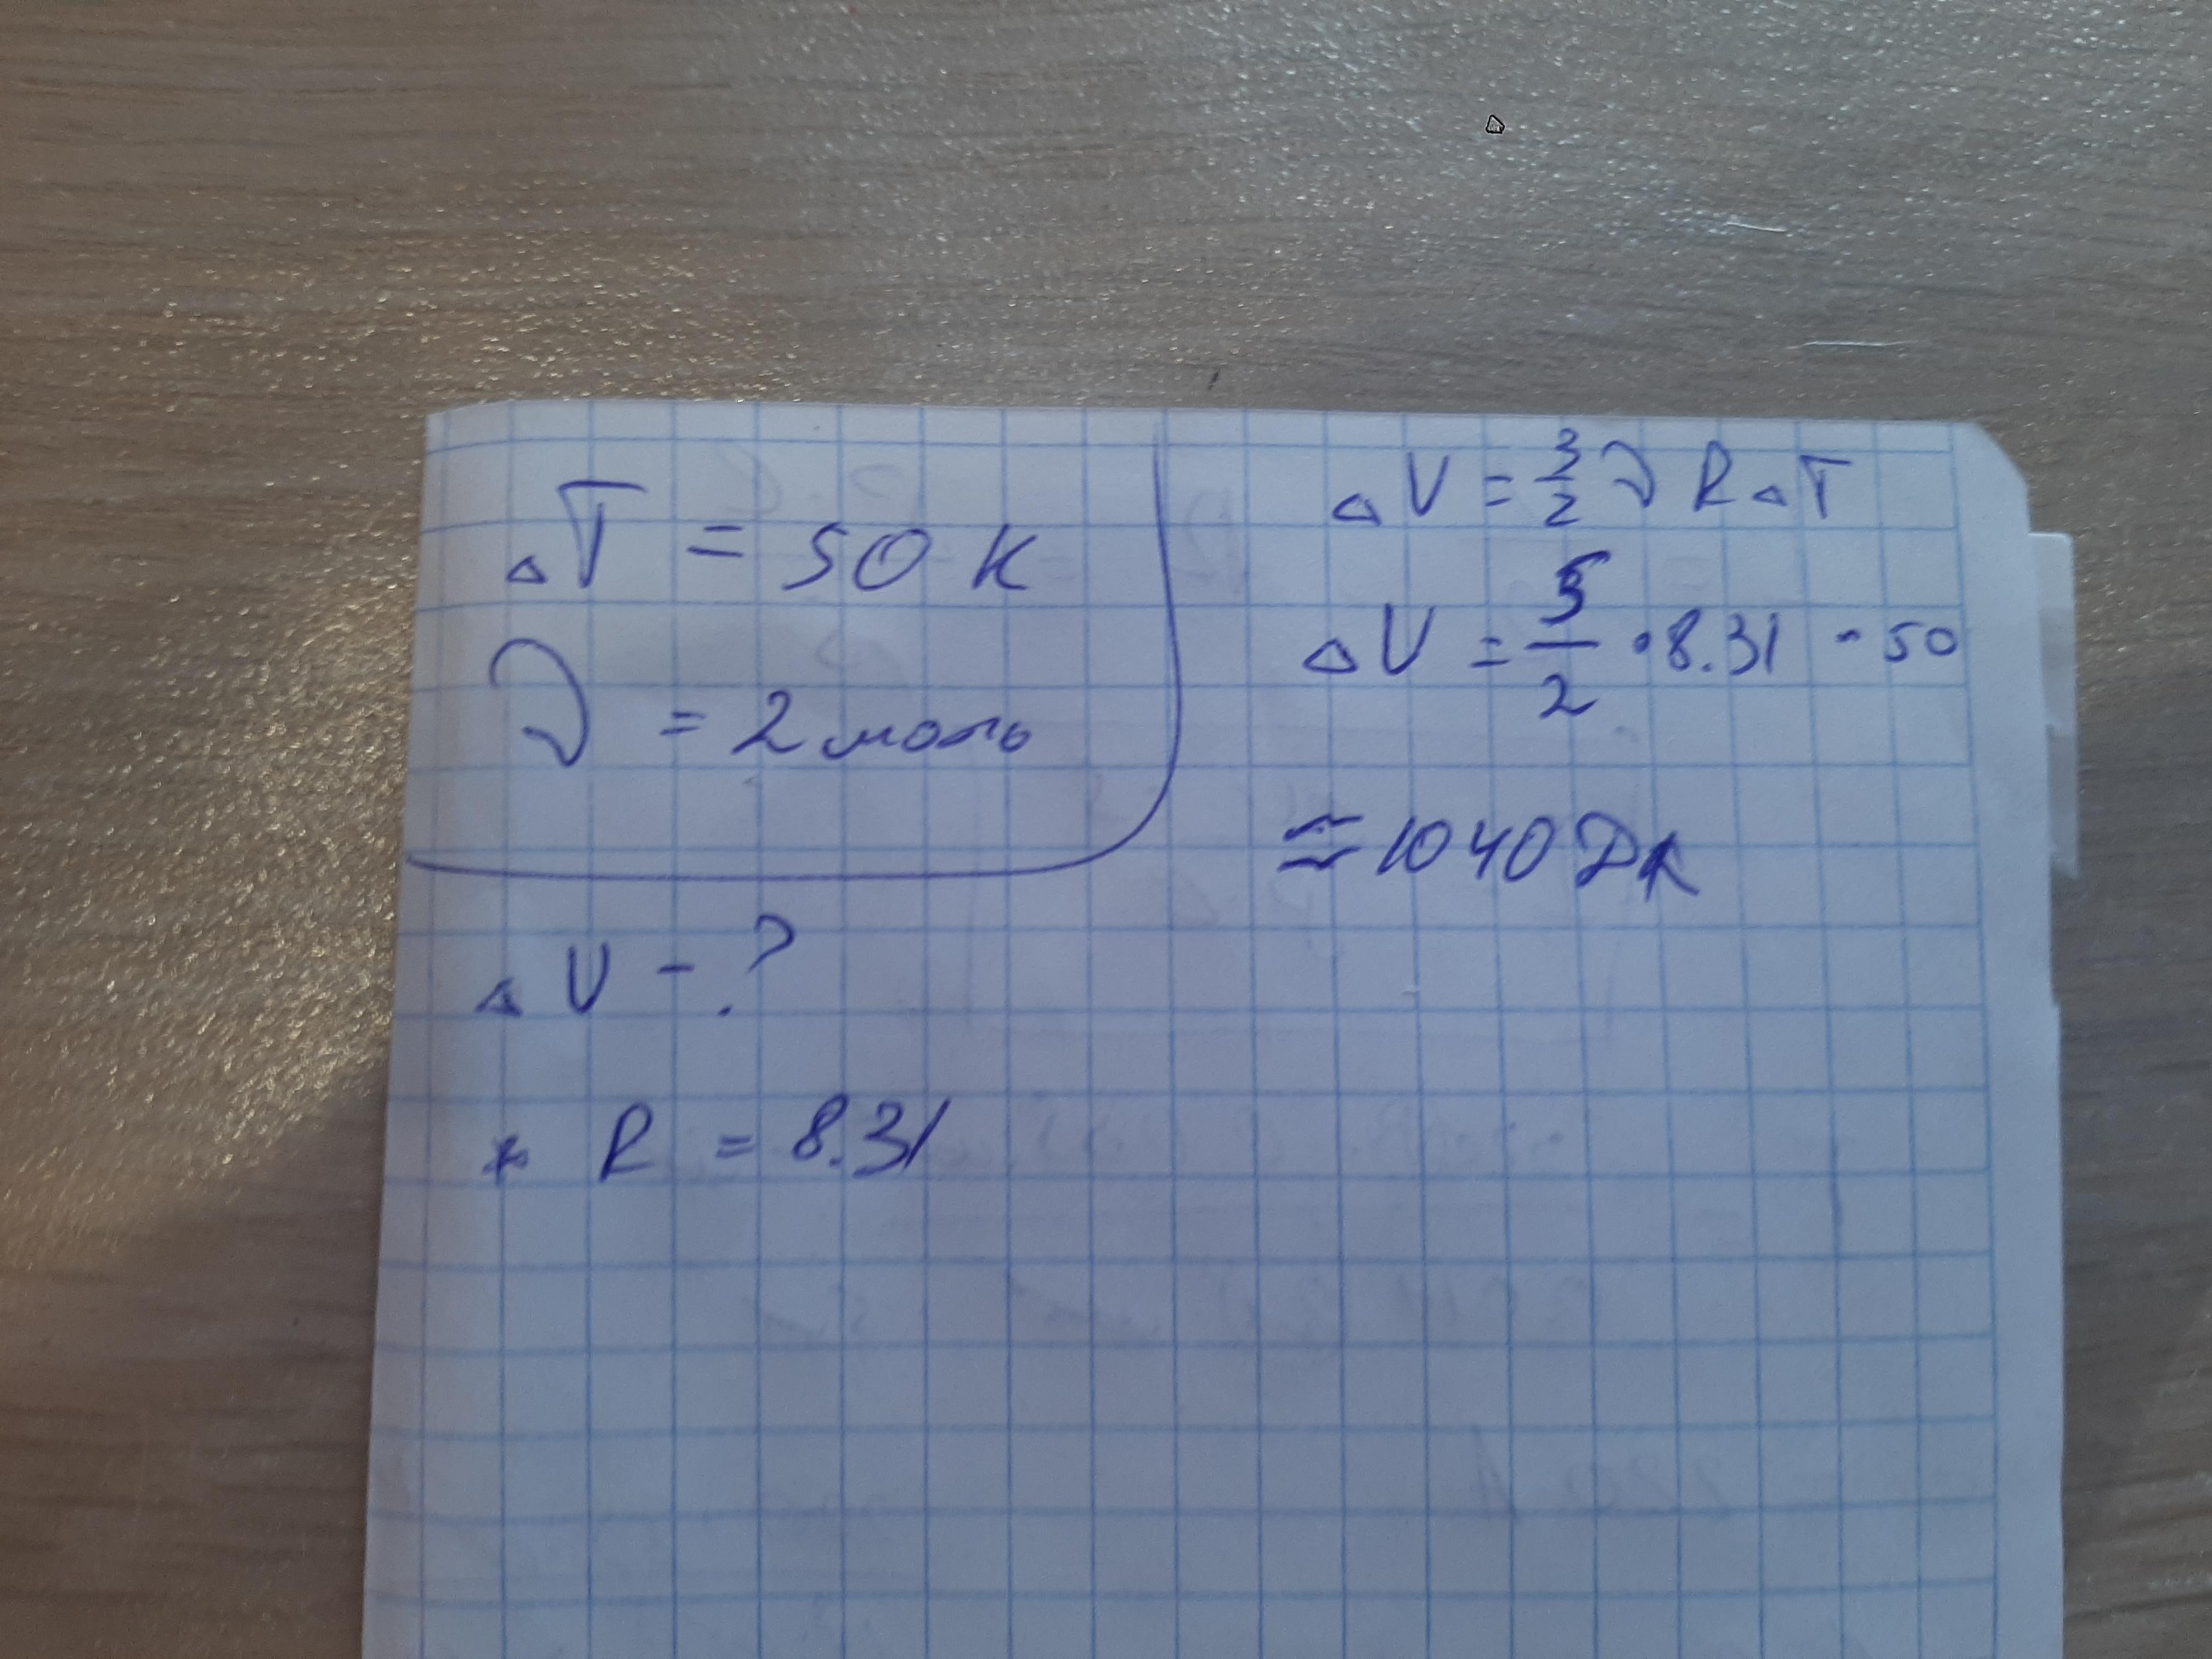 ΔT = 50 K
ν = 2 моль
ΔU - ?
* R = 8.31
ΔU = 3/2 ν R ΔT
ΔU = 5/2 · 8.31 · 50
≈ 1040 Дж